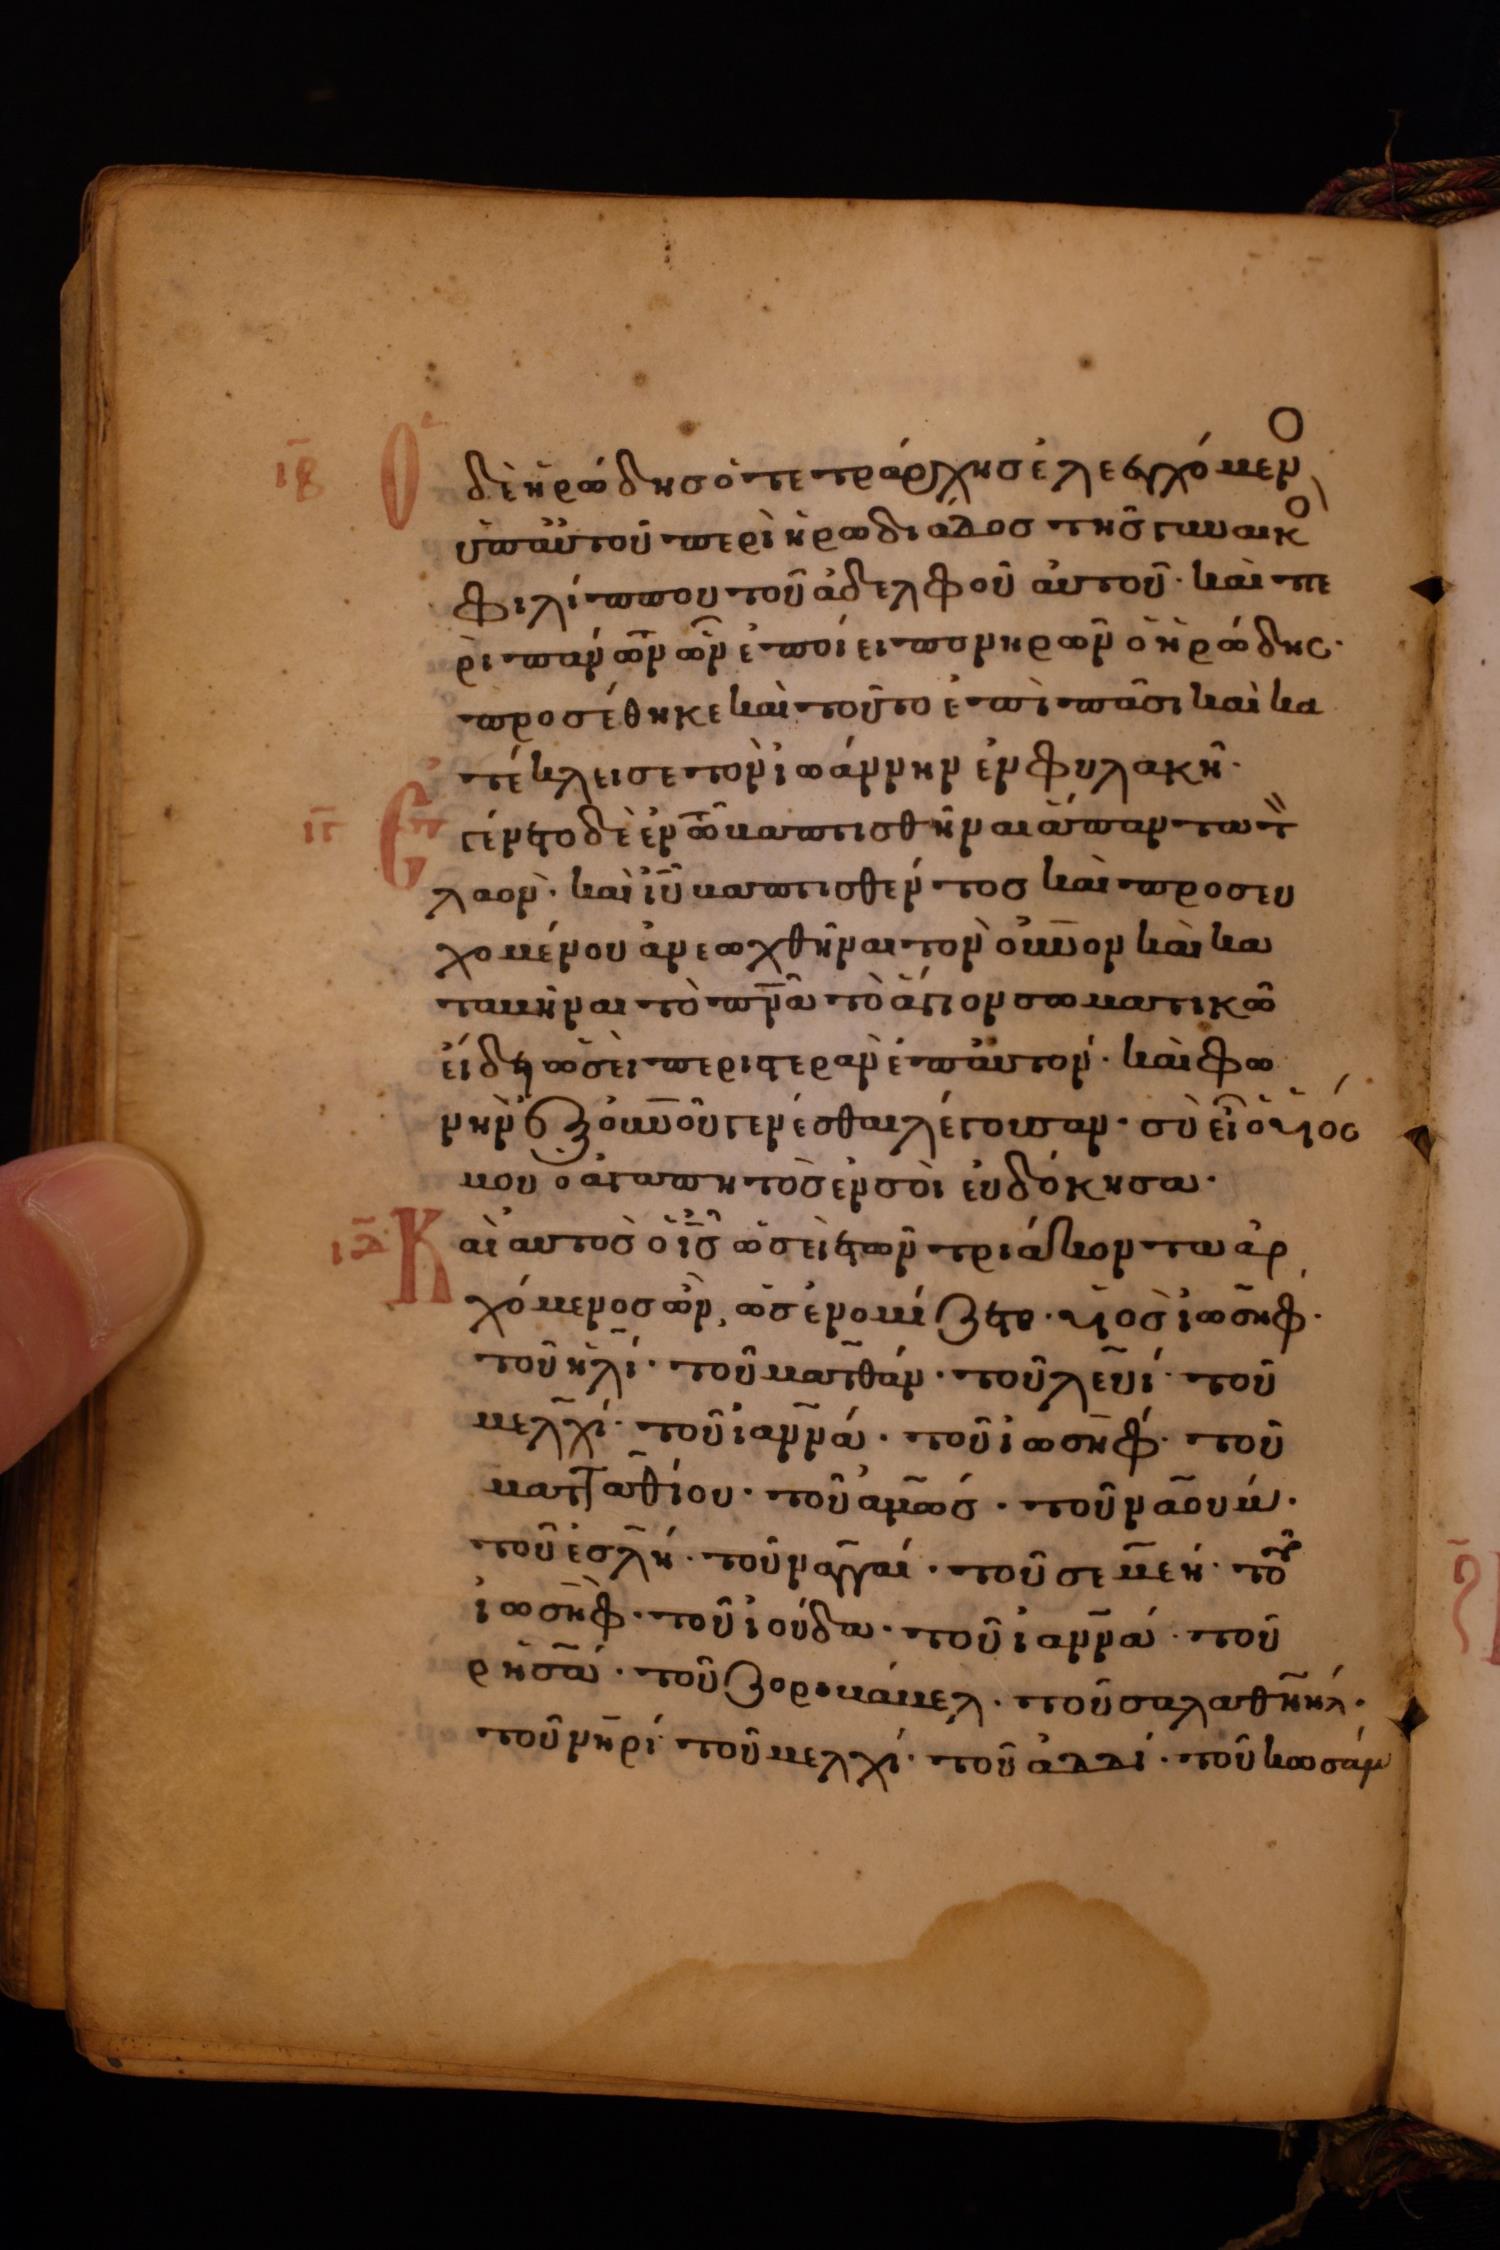 ιβ Ὁ δὲ ἡρώδησ ὁ τετράρχησ ἐλεγχόμενο
ὑπ αὐτοῦ περὶ ἡρωδιάδοσ τῆσ γυναικὸ
φιλίππου τοῦ ἀδελφοῦ αὐτοῦ· καὶ πε
ρὶ πάντων ὧν ἐποίει πονηρῶν ὁ ἡρώδης·
προσέθηκε καὶ τοῦτο ἐπὶ πᾶσι καὶ κα
τέκλεισε τὸν ἰωάννην ἐν φυλακῆ·
ιγ Ἐγένετο δὲ ἐν τῶ βαπτισθῆναι ἅπαντα τ
λαὸν· καὶ ἰῦ βαπτισθέντοσ καὶ προσευ
χομένου ἀνεωχθῆναι τὸν οὐνον καὶ κα
ταβῆναι τὸ πνᾶ τὸ ἅγιον σωματικῶ
εἴδει ὡσεὶ περιστερὰν ἐπ αὐτόν· καὶ φω
νὴν ἐξ οὐνοῦ γενέσθαι λέγουσαν· σὺ εἶ ὁ υἱός
μου ὁ ἀγαπητὸσ ἐν σοὶ εὐδόκησα·
ιδ Καὶ αὐτὸσ ὁ ἰσ ὡσεὶ ἐτῶν τριάκοντα ἀρ
χόμενοσ ὢν, ὡσ ἐνομίζετο· υἱὸσ ἰωσήφ·
τοῦ ἡλί· τοῦ ματθάν· τοῦ λευί· τοῦ
μελχί· τοῦ ἰαννά· τοῦ ἰωσήφ· τοῦ
ματταθίου· τοῦ ἀμώσ· τοῦ ναούμ·
τοῦ ἐσλή· τοῦ ναγγαί· τοῦ σεμεή· τοῦ
ἰωσὴφ· τοῦ ἰούδα· τοῦ ἰαννά· τοῦ
ρησά· τοῦ ζοροβάβελ· τοῦ σαλαθηήλ·
τοῦ νηρί· τοῦ μελχί· τοῦ ἀδδί· τοῦ κωσάμ